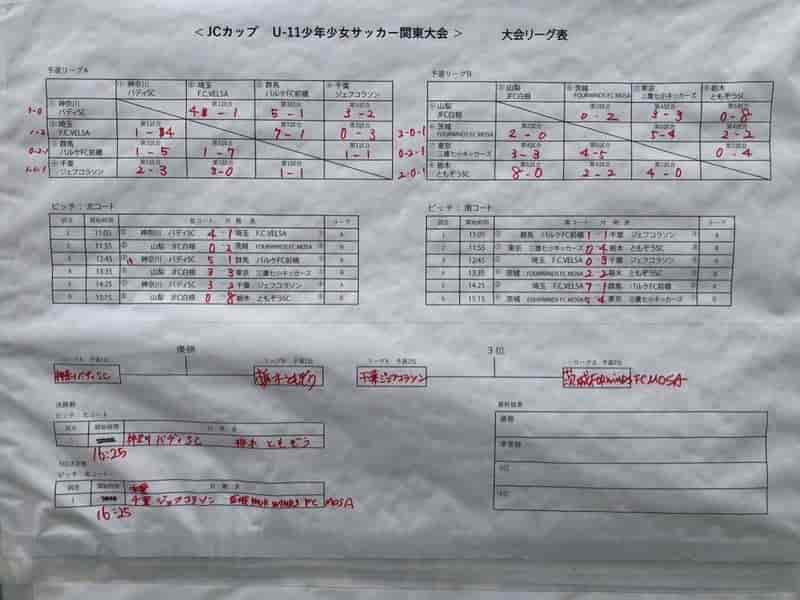 ＜JCカップ　U-11少年少女サッカー関東大会＞　大会リーグ表
予選リーグA
神奈川 バディSC　埼玉 F.C.VELSA　群馬 パルケFC前橋　千葉 ジェフコラソン
神奈川 バディSC　4 - 1　5 - 1　3 - 2
埼玉 F.C.VELSA　1 - 4　7 - 1　0 - 3
群馬 パルケFC前橋　1 - 5　1 - 7　1 - 1
千葉 ジェフコラソン　2 - 3　3 - 0　1 - 1
予選リーグB
山梨 JFC白根　茨城 FOURWINDS FC.MOSA　東京 三菱七ッキッカーズ　栃木 ともぞうSC
山梨 JFC白根　0 - 2　3 - 3　0 - 8
2-0-1　茨城 FOURWINDS FC.MOSA　2 - 0　5 - 4　2 - 2
0-2-1　東京　3 - 3　4 - 5　0 - 4
2-0-1　栃木 ともぞうSC　8 - 0　2 - 2　4 - 0
ピッチ：北コート
試合　開始時間　対戦表　リーグ
1　11:05　神奈川　バディSC　4　1　埼玉　F.C.VELSA　A
2　11:55　山梨　JFC白根　0　2　茨城　FOURWINDS FC.MOSA　B
3　12:45　神奈川　バディSC　5　1　群馬　パルケFC前橋　A
4　13:35　山梨　JFC白根　3　3　東京　B
5　14:25　神奈川　バディSC　3　2　千葉　ジェフコラソン　A
6　15:15　山梨　JFC白根　0　8　栃木　ともぞうSC　B
ピッチ：南コート
試合　開始時間　南コート　対戦表　リーグ
1　11:05　群馬　パルケFC前橋　1　1　千葉　ジェフコラソン　A
2　11:55　東京　0　4　栃木　ともぞうSC　B
3　12:45　埼玉　F.C.VELSA　0　3　千葉　ジェフコラソン　A
4　13:35　茨城　FOURWINDS FC.MOSA　2　2　栃木　ともぞうSC　B
5　14:25　埼玉　F.C.VELSA　7　1　群馬　パルケFC前橋　A
6　15:15　茨城　FOURWINDS FC.MOSA　5　4　東京　B
優勝　3位
リーグA　予選1位　リーグB　予選1位　リーグA　予選2位
神奈川バディSC　栃木ともぞう　千葉ジェフコラソン　茨城FORWINDS FC MOSA
決勝戦
ピッチ：北コート
試合　開始時間　対戦表
神奈川 バディSC　栃木 ともぞう
16:25
3位決定戦
試合　開始時間　対戦表
1　千葉 ジェフコラソン　FOUR WINDS FC MOSA
16:25
最終結果
優勝
準優勝
3位
4位